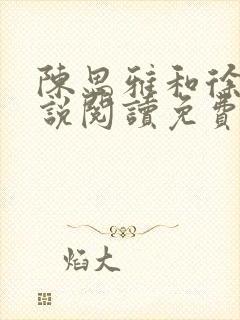 陳思雅和徐
說閱讀免費
焰大